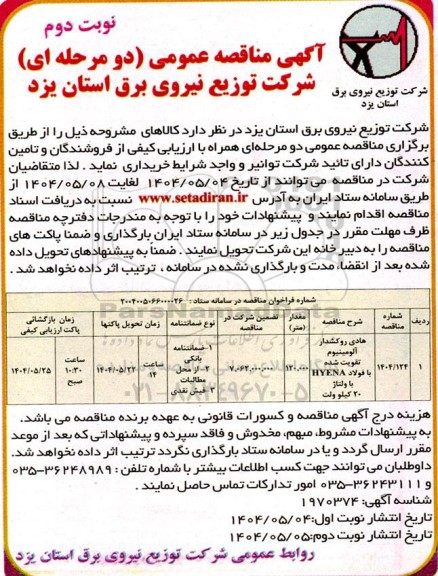 نوبت دوم
آگهی مناقصه عمومی (دو مرحله ای)
شرکت توزیع نیروی برق استان یزد
شرکت توزیع نیروی برق
استان یزد
شرکت توزیع نیروی برق استان یزد در نظر دارد کالاهای مشروحه ذیل را از طریق
برگزاری مناقصه عمومی دو مرحله‌ای همراه با ارزیابی کیفی از فروشندگان و تامین
کنندگان دارای تائید شرکت توانیر و واجد شرایط خریداری نماید . لذا متقاضیان
شرکت در مناقصه می توانند از تاریخ ۱۴۰۴/۰۵/۰۴ لغایت ۱۴۰۴/۰۵/۰۸ از
طریق سامانه ستاد ایران به آدرس www.setadiran.ir نسبت به دریافت اسناد
مناقصه اقدام نمایند و پیشنهادات خود را با توجه به مندرجات دفترچه مناقصه
ظرف مهلت مقرر در جدول زیر در سامانه ستاد ایران بارگذاری و ضمنا پاکت های
مناقصه را به دبیرخانه این شرکت تحویل نمایند . ضمناً به پیشنهادهای تحویل داده
شده بعد از انقضاء مدت و بارگذاری نشده در سامانه ، ترتیب اثر داده نخواهد شد .
شماره فراخوان مناقصه در سامانه ستاد : ۲۰۰۴۰۰۵۰۶۶۰۰۰۰۲۶
ردیف | شماره مناقصه | شرح مناقصه | مقدار (متر) | تضمین شرکت در مناقصه | نوع ضمانتنامه | زمان تحویل پاکتها | زمان بازگشائی پاکت ارزیابی کیفی
۱ | ۱۴۰۴/۱۲۴ | هادی روکشدار آلومینیوم تقویت شده با فولاد HYENA با ولتاژ ۲۰ کیلو ولت | ۱۲۰.۰۰۰ | ۷.۰۶۲.۰۰۰.۰۰۰ | ۱-ضمانتنامه بانکی ۲-از محل مطالبات ۳-فیش نقدی | ساعت ۱۴ ۱۴۰۴/۰۵/۲۲ | ساعت ۱۰:۳۰ صبح ۱۴۰۴/۰۵/۲۵
هزینه درج آگهی مناقصه و کسورات قانونی به عهده برنده مناقصه می باشد.
به پیشنهادات مشروط، مبهم، مخدوش و فاقد سپرده و پیشنهاداتی که بعد از موعد
مقرر ارسال گردد و یا در سامانه ستاد بارگذاری نگردد ترتیب اثر داده نخواهد شد.
داوطلبان می توانند جهت کسب اطلاعات بیشتر با شماره تلفن : ۳۶۲۴۸۹۸۹-۰۳۵
و ۳۶۲۴۳۱۱۱-۰۳۵ امور تدارکات تماس حاصل نمایند .
شناسه آگهی: ۱۹۷۰۳۷۴
تاریخ انتشار نوبت اول:۱۴۰۴/۰۵/۰۴
تاریخ انتشار نوبت دوم:۱۴۰۴/۰۵/۰۵
روابط عمومی شرکت توزیع نیروی برق استان یزد